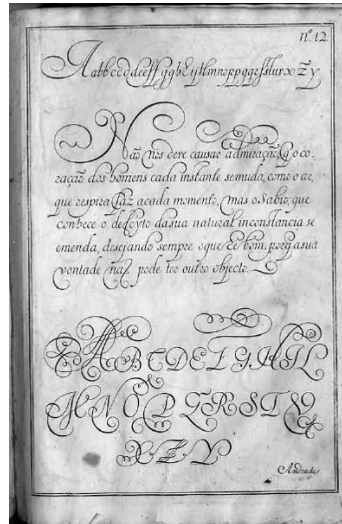 nº. 12.
Aabbccddeeffgghhijllmnoppqqrsstuvxzzy
Não nos deve causar admiração, q̃ o co-
ração dos homens cada instante se muda, como o ar,
que respira faz a cada momento, mas o Sabio, que
conhece o defeyto da sua natural inconstancia se
emenda, desejando sempre o que he bom, porq̃ a sua
vontade naõ pode ter outro objecto.
ABCDEFGHIL
MNOPQRSTV
XZY
Andrade